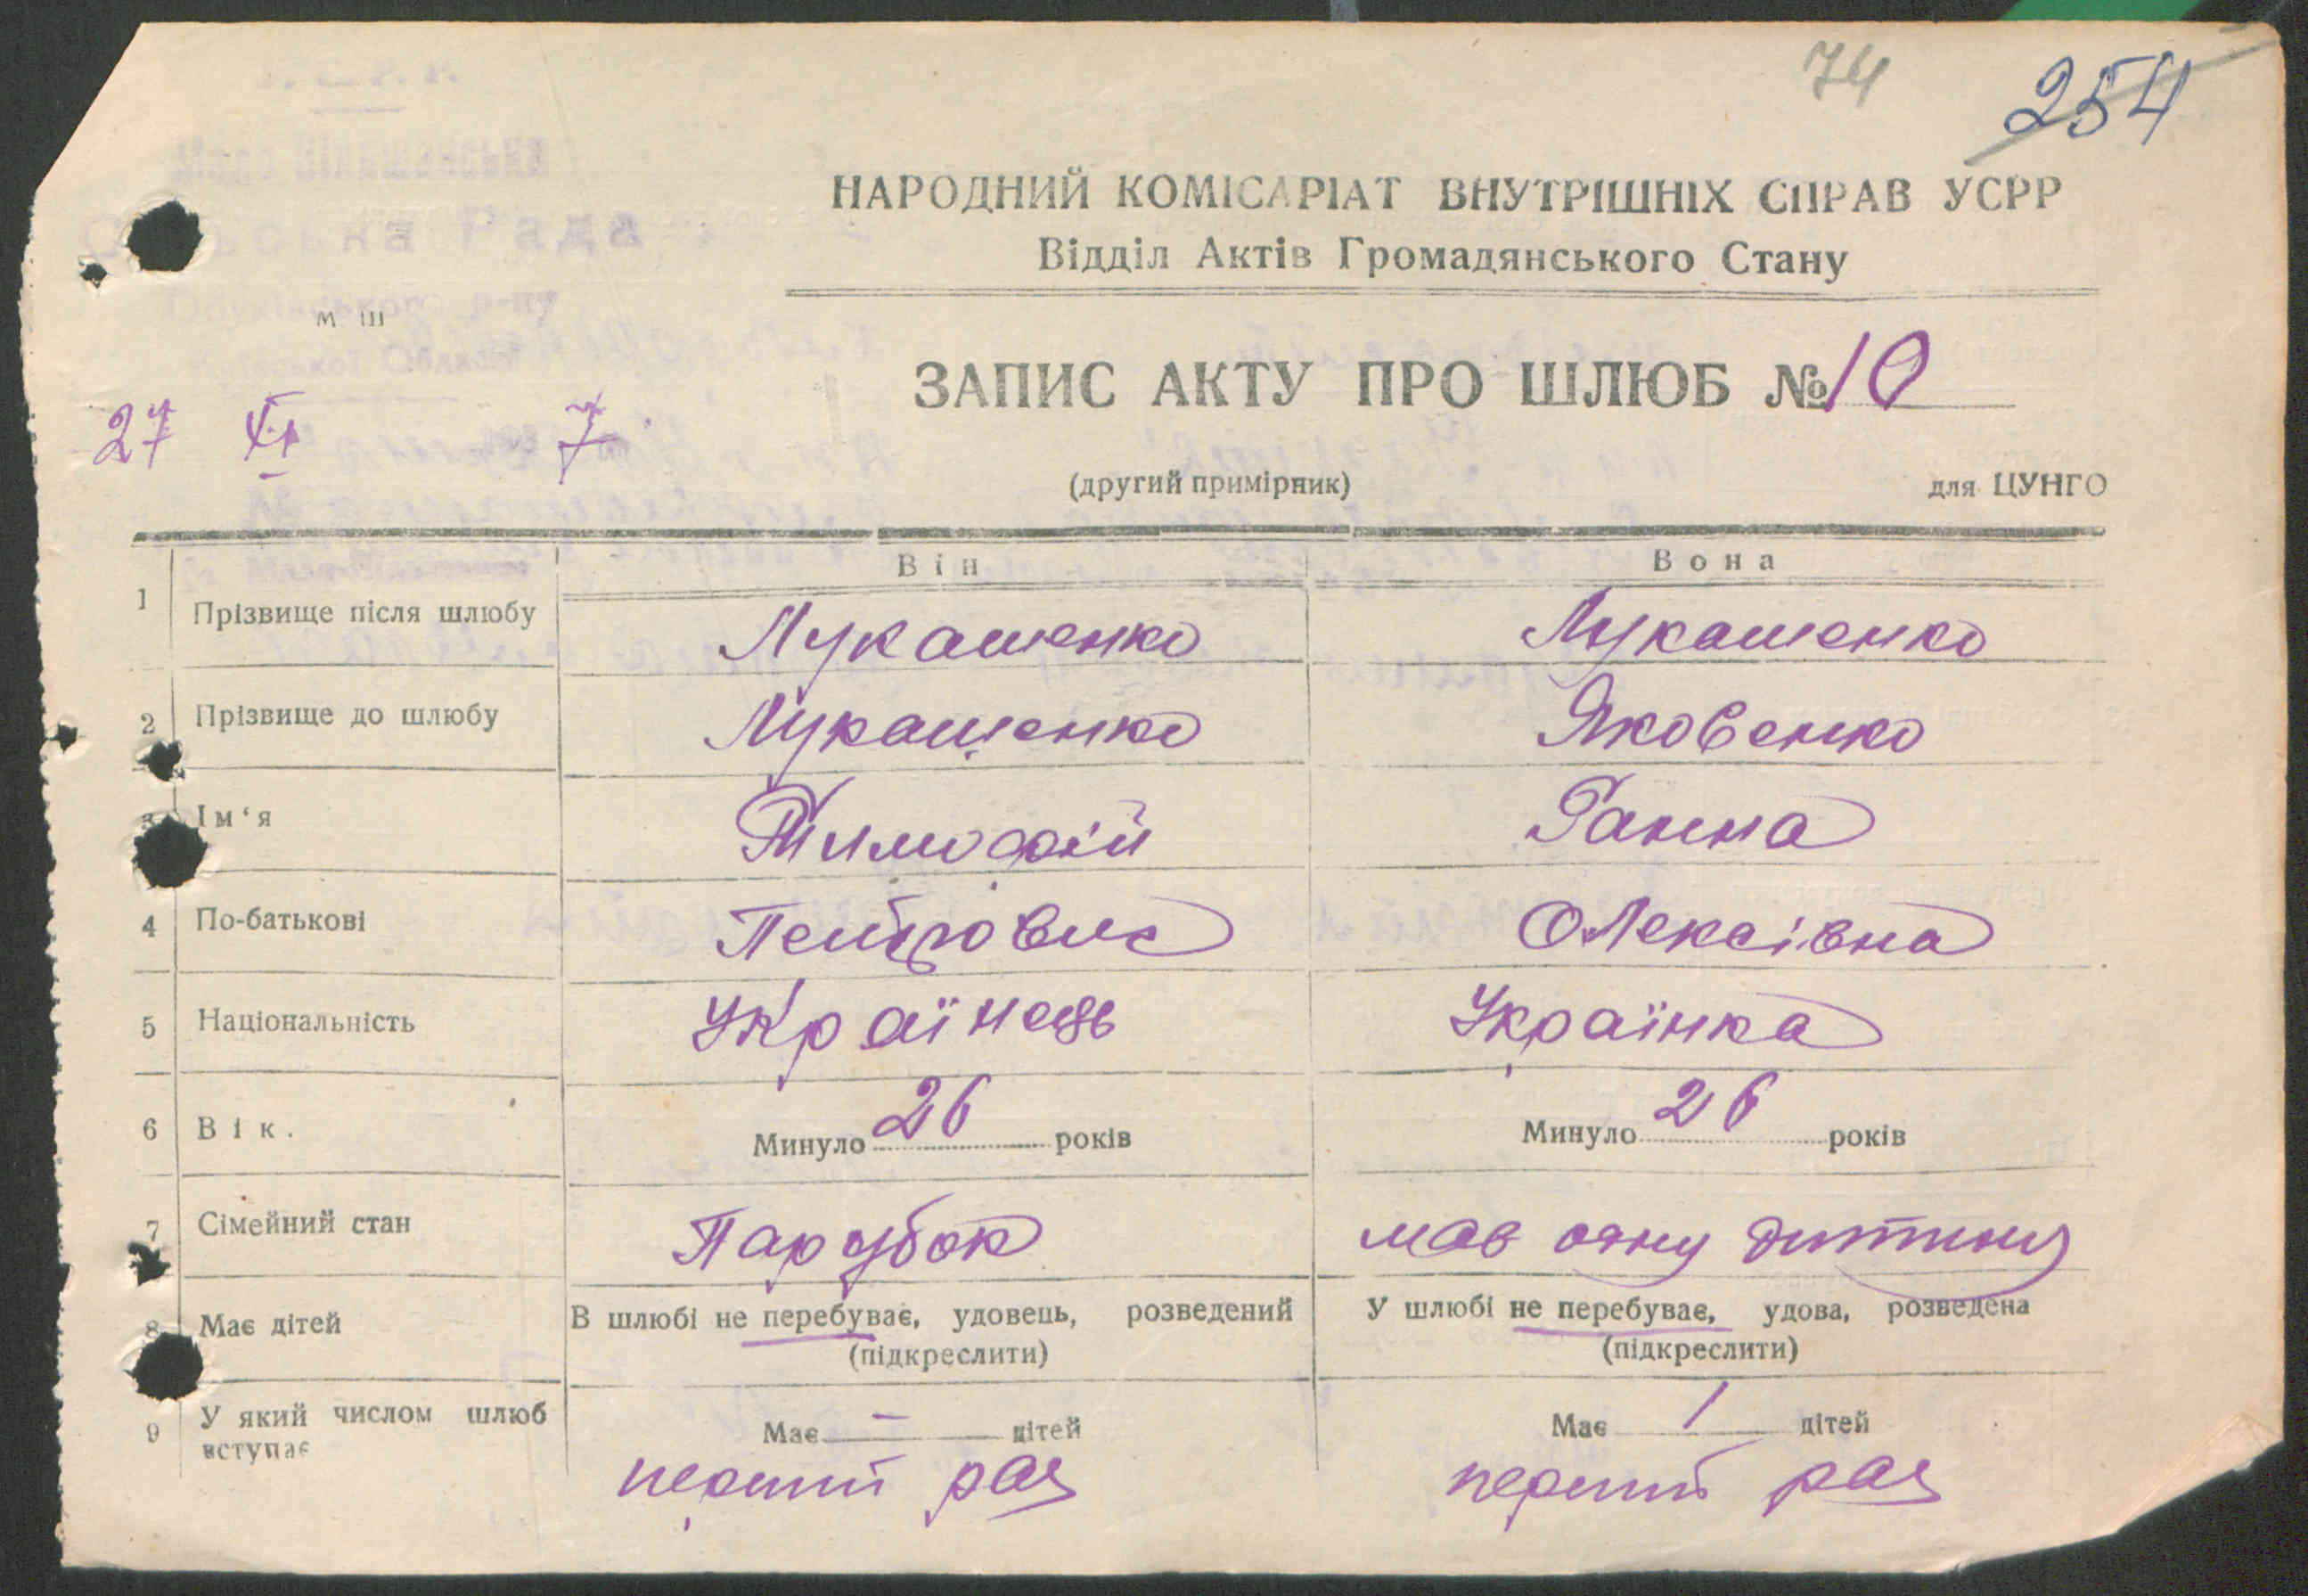 74
254
НАРОДНИЙ КОМІСАРІАТ ВНУТРІШНІХ СПРАВ УСРР
Відділ Актів Громадянського Стану
м ііі
ЗАПИС АКТУ ПРО ШЛЮБ № 10
27 XI 7
(другий примірник) для ЦУНГО
Він Вона
1 Прізвище після шлюбу Лукашенко Лукашенко
2 Прізвище до шлюбу Лукашенко Яковенко
3 Ім‘я Тимофій Ганна
4 По-батькові Петрович Олексівна
5 Національність Українець Українка
6 Вік. Минуло 26 років Минуло 26 років
7 Сімейний стан Парубок мав одну дитину
8 Має дітей В шлюбі не перебуває, удовець, розведений У шлюбі не перебуває, удова, розведена
(підкреслити) (підкреслити)
9 У який числом шлюб вступає Має — дітей Має 1 дітей
перший раз перший раз